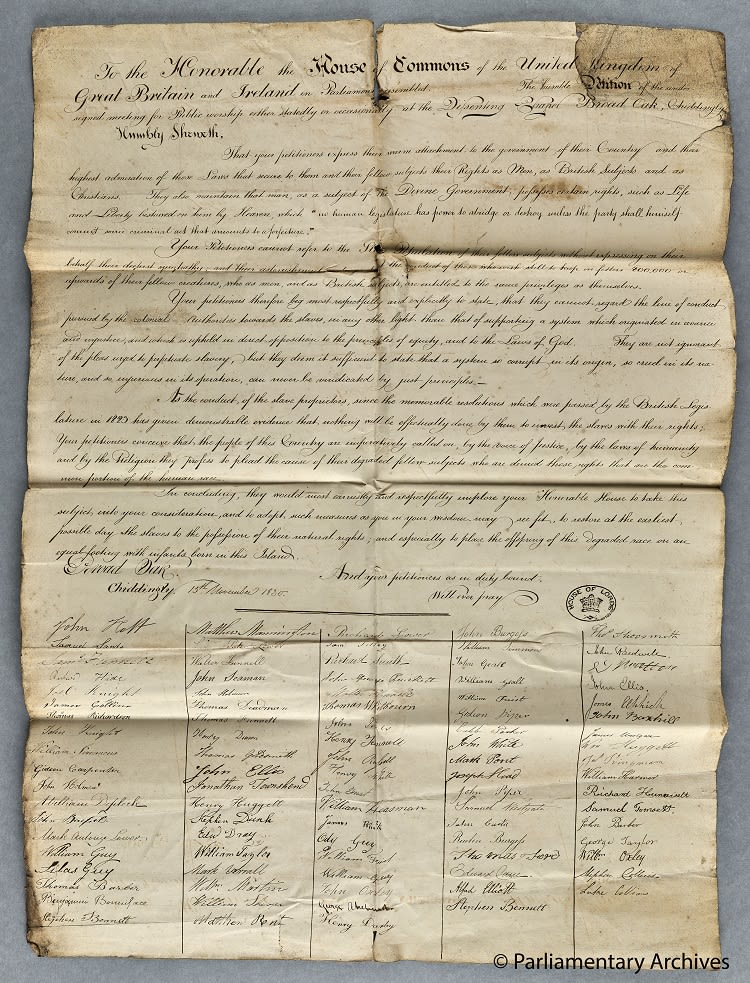 To the Honorable the House of Commons of the United Kingdom of
Great Britain and Ireland in Parliament assembled. The humble Petition of the under
signed meeting for Public worship either statedly or occasionally at the Dissenting Broad Oak, Chiddingly
Humbly Sheweth,
That your petitioners express their warm attachment to the government of their Country and their
highest admiration of those Laws that secure to them and their fellow subjects their Rights as Men, as British Subjects and as
Christians. They also maintain that man, as a subject of the Divine Government, possesses certain rights, such as Life
and Liberty bestowed on him by Heaven, which "no human legislature has power to abridge or destroy unless the party shall himself
commit some criminal act that amounts to a forfeiture."
Your Petitioners cannot refer to the of their fellow subjects without expressing on their
behalf their deepest sympathy; and their astonishment the conduct of those who wish still to keep in fetters 800,000 or
upwards of their fellow creatures, who as men, and as British subjects, are entitled to the same privileges as themselves.
Your petitioners therefore beg most respectfully and explicitly to state, that they cannot regard the line of conduct
pursued by the colonial Authorities towards the slaves, in any other light than that of supporting a system which originated in avarice
and injustice, and which is upheld in direct opposition to the principles of equity, and to the Laws of God. They are not ignorant
of the pleas urged to perpetuate slavery, but they deem it sufficient to state that a system so corrupt in its origin, so cruel in its na-
ture, and so injurious in its operation, can never be vindicated by just principles—
As the conduct, of the slave proprietors, since the memorable resolutions which were passed by the British Legis-
lature in 1823 has given demonstrable evidence that nothing will be effectually done by them to invest the slaves with their rights;
Your petitioners conceive that the people of this Country are imperatively called on, by the voice of Justice, by the laws of humanity
and by the Religion they profess to plead the cause of their degraded fellow subjects who are denied those rights that are the com-
mon portion of the human race.
In concluding, they would most earnestly and respectfully implore your Honorable House to take this
subject, into your consideration, and to adopt, such measures as you in your wisdom may see fit, to restore at the earliest
possible day the slaves to the possession of their natural rights; and especially to place the offspring of this degraded race on an
equal footing with infants born in this Island.
Broad Oak And your petitioners as in duty bound
Chiddingly 15th November 1830. Will ever pray
HOUSE OF LORDS
John
Samuel
Richard
Joel Knight
James
Thomas Richardson
John Knight
William Simmons
Gideon Carpenter
John
William Diplock
John
Mark Antony Lower
William Guy
Silas Guy
Thomas Barber
Benjamin Boniface
Stephen Bennett
Matthew Mannington
Walter Funnell
John Jerman
John
Thomas Deadman
Thomas Funnell
Henry Dann
Thomas Goldsmith
John Ellis
Jonathan Townshend
Henry Huggett
Stephen Dunk
Edwd Dray
William Taylor
Mark
Willm Martin
William
Matthew Pont
Richard Lower
John George
Thomas Wilbourn
John
Henry Funnell
John
Henry
John
William Heasman
James
Edy Guy
William
William Guy
John Oxley
George
Henry Danby
John Burgess
William Simmons
John
William
William
Gideon Piper
John White
Mark Pont
Joseph Head
John Piper
Samuel Westgate
John
Reuben Burgess
Thomas Ford
Edward
Alfred Elliott
Stephen Bennett
Thos Shoosmith
John
Wootton
John Ellis
James
John Boxhill
James
Wm Huggett
William Harmer
Richard Hunnisett
Samuel
John Barber
George Taylor
Willm Oxley
Stephen Collins
Luke Collins
© Parliamentary Archives